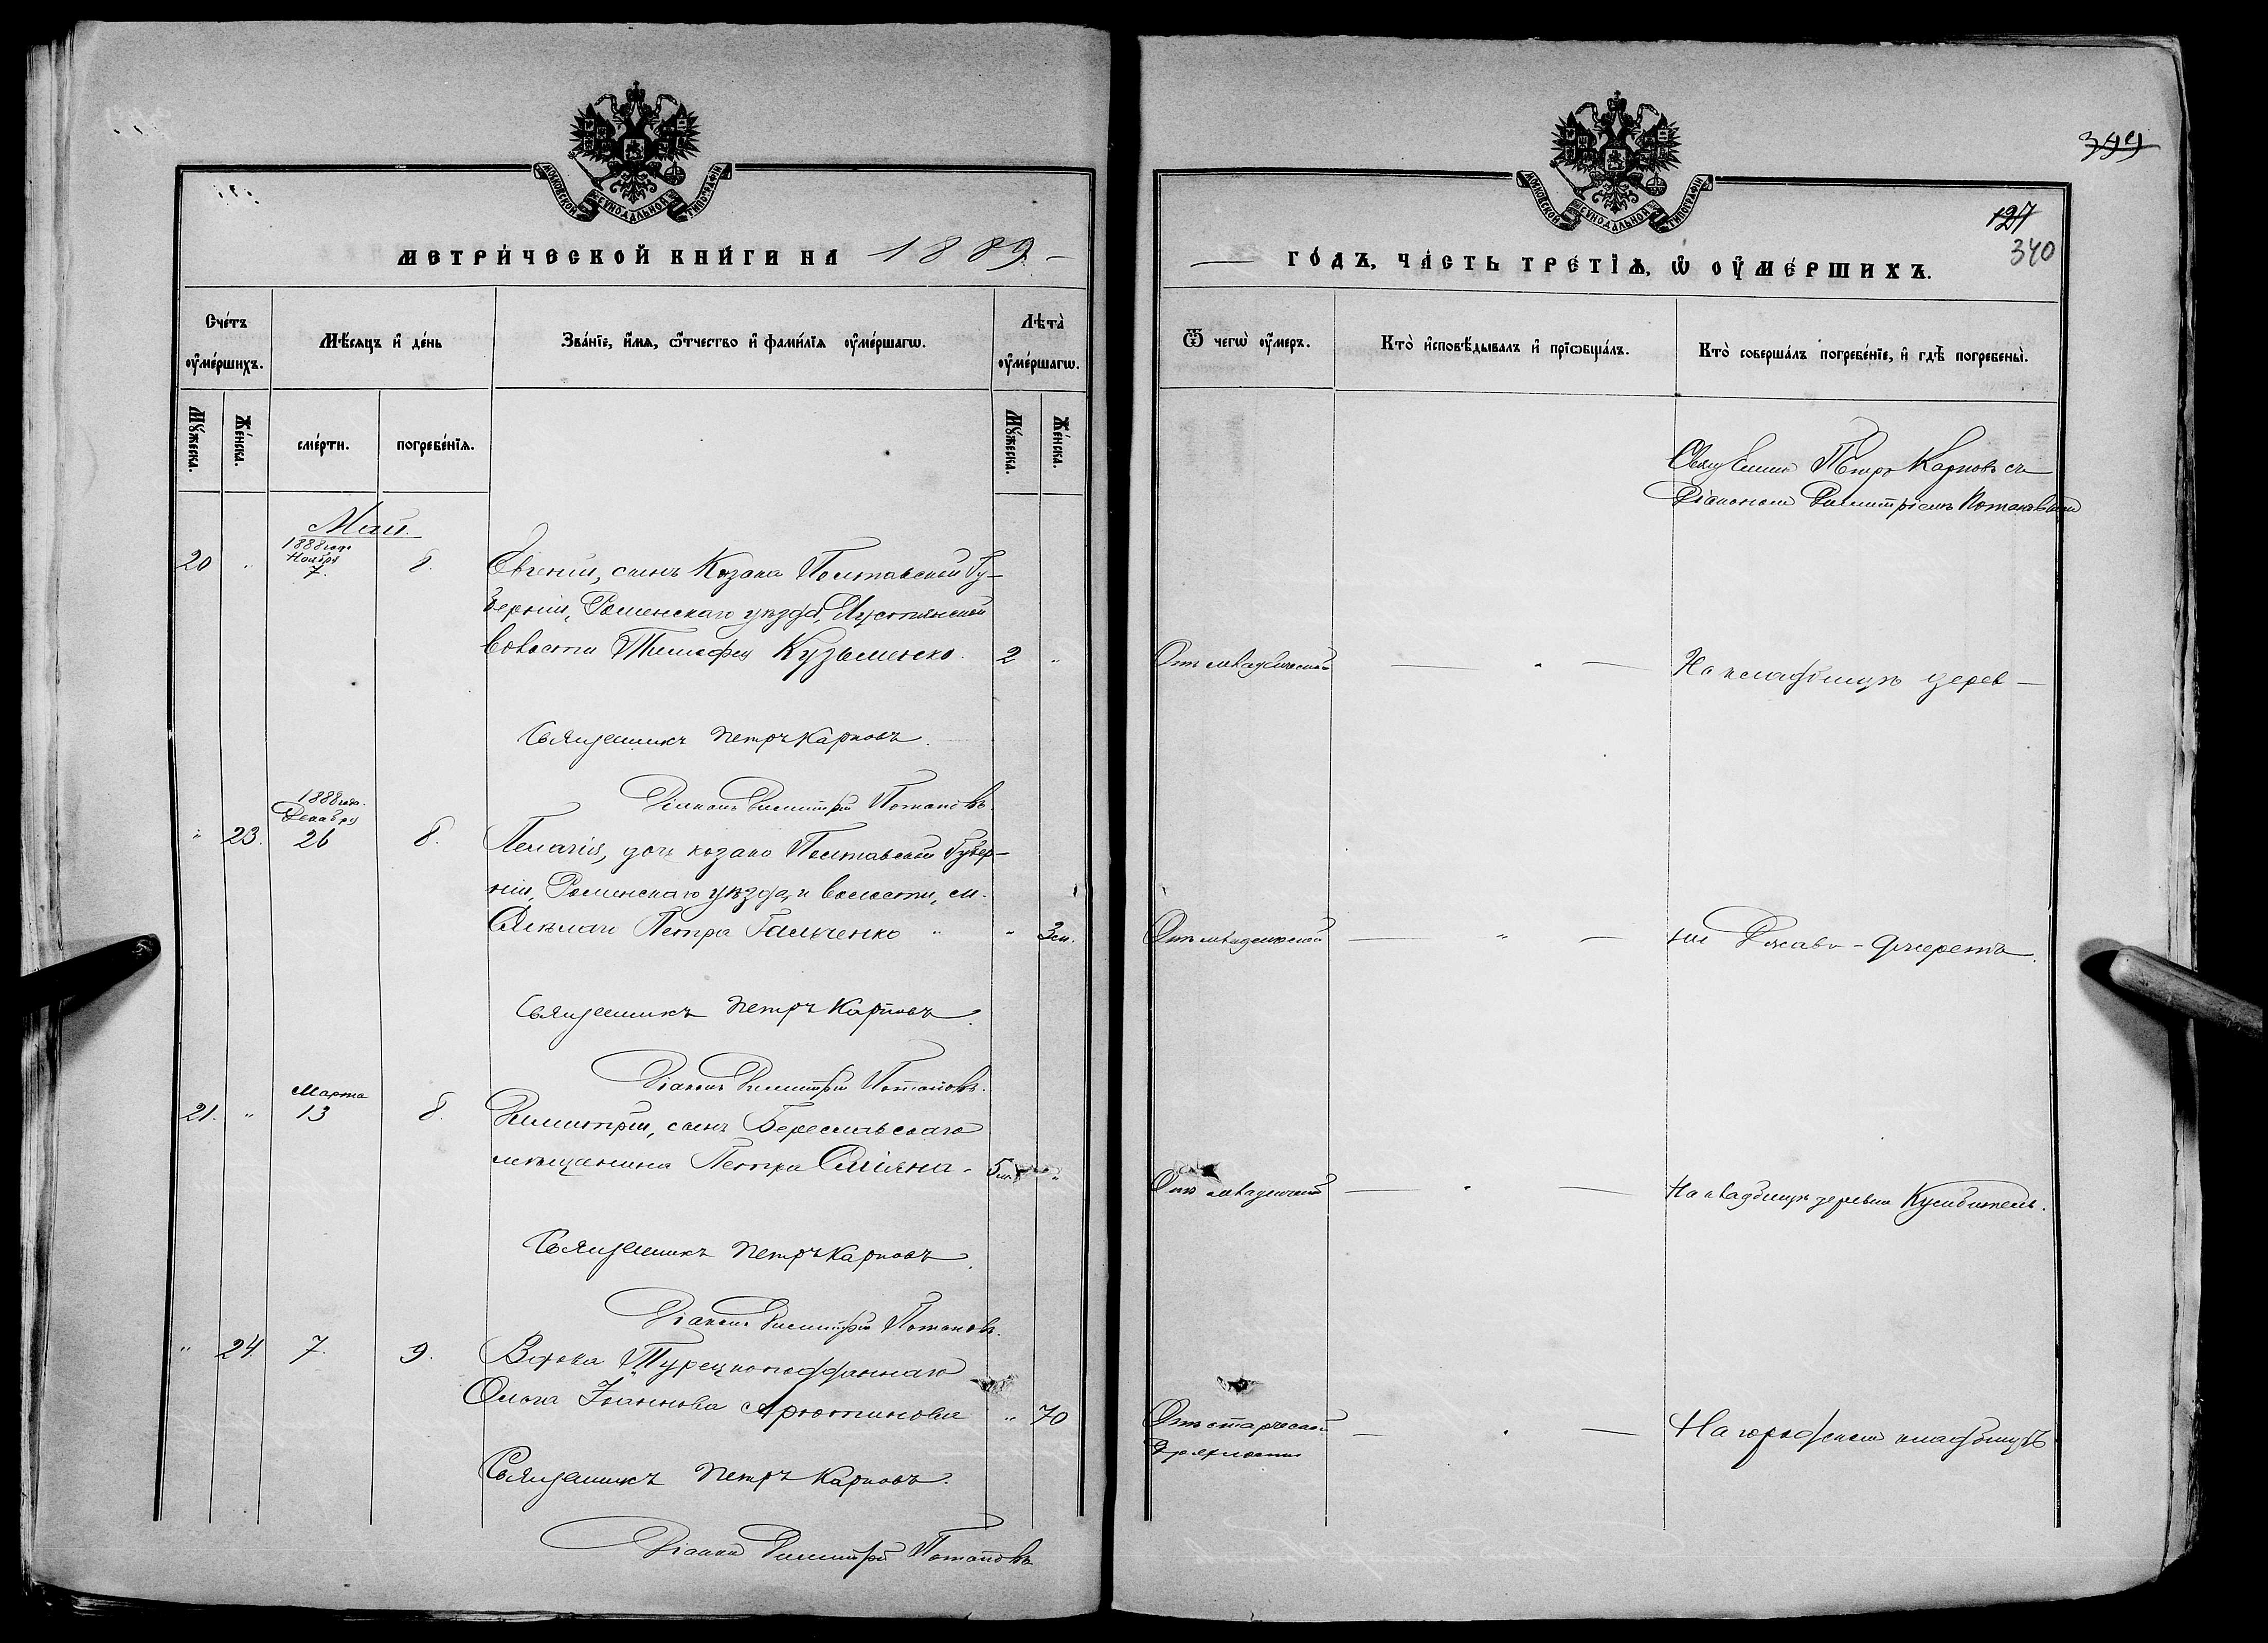 МОСКОВСКОЙ СѴНОДАЛЬНОЙ ТИПОГРАФІИ
МЕТРИ́ЧЕСКОЙ КНИ́ГИ НА 1889
Сче́тъ ᲂу҆ме́ршихъ.
Мѣ́сяцъ и҆ де́нь
Зва́нїе, и҆́мѧ, ѻ҆́тчество и҆ фамі́лїѧ ᲂу҆ме́ршагѡ.
Лѣта̀ ᲂу҆ме́ршагѡ.
Мꙋ́жеска.
Же́нска.
сме́рти.
погребе́нїѧ.
Мꙋ́жеска.
Же́нска.
Май.
1888 года
Ноября
20 " 7. 8. Евгеній, сынъ Козака Полтавской Гу-
берніи, Роменскаго уѣзда,
волости Тимофея Кузьменко. 2 "
Священникъ Петръ Карповъ.
Діаконъ Димитрій Потаповъ.
1888 года.
Декабря
" 23. 26 8. Пелагія, дочь козака Полтавской Губер-
ніи, Роменскаго уѣзда, и волости, см.
Петра Гальченко " " 3 м.
Священникъ Петръ Карповъ.
Діаконъ Димитрій Потаповъ.
Марта
21. " 13 8. Димитрій, сынъ Бериславскаго
мѣщанина Петра Сміяна. 5 м. "
Священникъ Петръ Карповъ.
Діаконъ Димитрій Потаповъ.
" 24. 7. 9. Вдова Турецкоподданнаго
Ольга Іоаннова Арютинова " 70
Священникъ Петръ Карповъ.
Діаконъ Димитрій Потаповъ
МОСКОВСКОЙ СѴНОДАЛЬНОЙ ТИПОГРАФІИ
127
340
ГО́ДЪ, ЧА́СТЬ ТРЕ́ТЇѦ, Ѡ҆ ОУ҆МЕ́РШИХЪ.
Ѿ чегѡ̀ ᲂу҆́меръ.
Кто̀ и҆сповѣ́дывалъ и҆ прїѡбща́лъ.
Кто̀ соверша́лъ погребе́нїе, и҆ гдѣ̀ погребены̀.
Священникъ Петръ Карповъ съ
Діакономъ Димитріемъ Потаповымъ
Отъ младенческой " На кладбищѣ дерев-
Отъ младенческой " ни Джаво-
Отъ младенческой " На кладбищѣ деревни
Отъ старческой " На городскомъ кладбищѣ
дряхлости